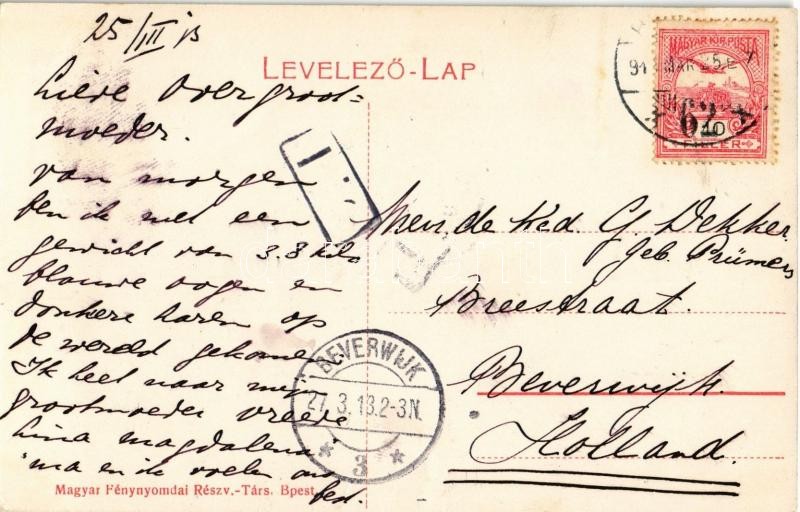 25/III 13
LEVELEZŐ-LAP
Lieve Overgroot-
moeder.
van morgen
ben ik met een
gewicht van 3.8 kilo
blauwe oogen en
donkere haren op
de wereld gekomen
Ik heet naar mijn
grootmoeder
Lina Magdalena
ma en ik voelen ons
best.
Mevr. de Wed G. Dekker
geb. Prümers
Breestraat.
Beverwijk.
Holland.
MAGYAR KIR. POSTA
10
FILLÉR
62
BEVERWIJK
27.3.13.2-3N.
3
Magyar Fénynyomdai Részv.-Társ. Bpest